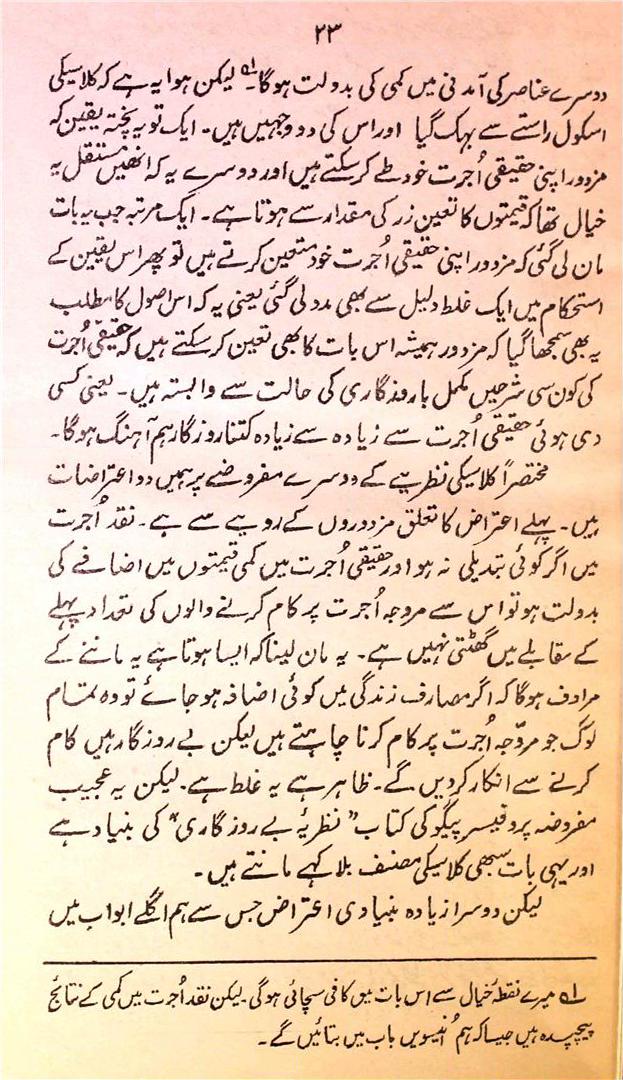 ۲۳
دوسرے عناصر کی آمدنی میں کمی کی بدولت ہوگا۔ لیکن ہوا یہ ہے کہ کلاسیکی
اسکول راستے سے بہک گیا اور اس کی دو وجہیں ہیں۔ ایک تو یہ پختہ یقین کہ
مزدور اپنی حقیقی اُجرت خود طے کر سکتے ہیں اور دوسرے یہ کہ انھیں مستقل یہ
خیال تھا کہ قیمتوں کا تعین زر کی مقدار سے ہوتا ہے۔ ایک مرتبہ جب یہ بات
مان لی گئی کہ مزدور اپنی حقیقی اُجرت خود متعین کرتے ہیں تو پھر اس یقین کے
استحکام میں ایک غلط دلیل سے بھی مدد لی گئی یعنی یہ کہ اس اصول کا مطلب
یہ بھی سمجھا گیا کہ مزدور ہمیشہ اس بات کا بھی تعین کر سکتے ہیں کہ حقیقی اُجرت
کی کون سی شرحیں مکمل باروزگاری کی حالت سے وابستہ ہیں۔ یعنی کسی
دی ہوئی حقیقی اُجرت سے زیادہ سے زیادہ کتنا روزگار ہم آہنگ ہوگا۔
مختصراً کلاسیکی نظریے کے دوسرے مفروضے پر ہمیں دو اعتراضات
ہیں۔ پہلے اعتراض کا تعلق مزدوروں کے رویے سے ہے۔ نقد اُجرت
میں اگر کوئی تبدیلی نہ ہو اور حقیقی اُجرت میں کمی قیمتوں میں اضافے کی
بدولت ہو تو اس سے مروجہ اُجرت پر کام کرنے والوں کی تعداد پہلے
کے مقابلے میں گھٹتی نہیں ہے۔ یہ مان لینا کہ ایسا ہوتا ہے یہ ماننے کے
مرادف ہوگا کہ اگر مصارف زندگی میں کوئی اضافہ ہو جائے تو وہ تمام
لوگ جو مروّجہ اُجرت پر کام کرنا چاہتے ہیں لیکن بے روزگار ہیں کام
کرنے سے انکار کر دیں گے۔ ظاہر ہے یہ غلط ہے۔ لیکن یہ عجیب
مفروضہ پروفیسر پیگو کی کتاب "نظریۂ بے روزگاری" کی بنیاد ہے
اور یہی بات سبھی کلاسیکی مصنف بلا کہے مانتے ہیں۔
لیکن دوسرا زیادہ بنیادی اعتراض جس سے ہم اگلے ابواب میں
لے میرے نقطۂ خیال سے اس بات میں کافی سچائی ہوگی۔ لیکن نقد اُجرت میں کمی کے نتائج
پیچیدہ ہیں جیسا کہ ہم اُنیسویں باب میں بتائیں گے۔